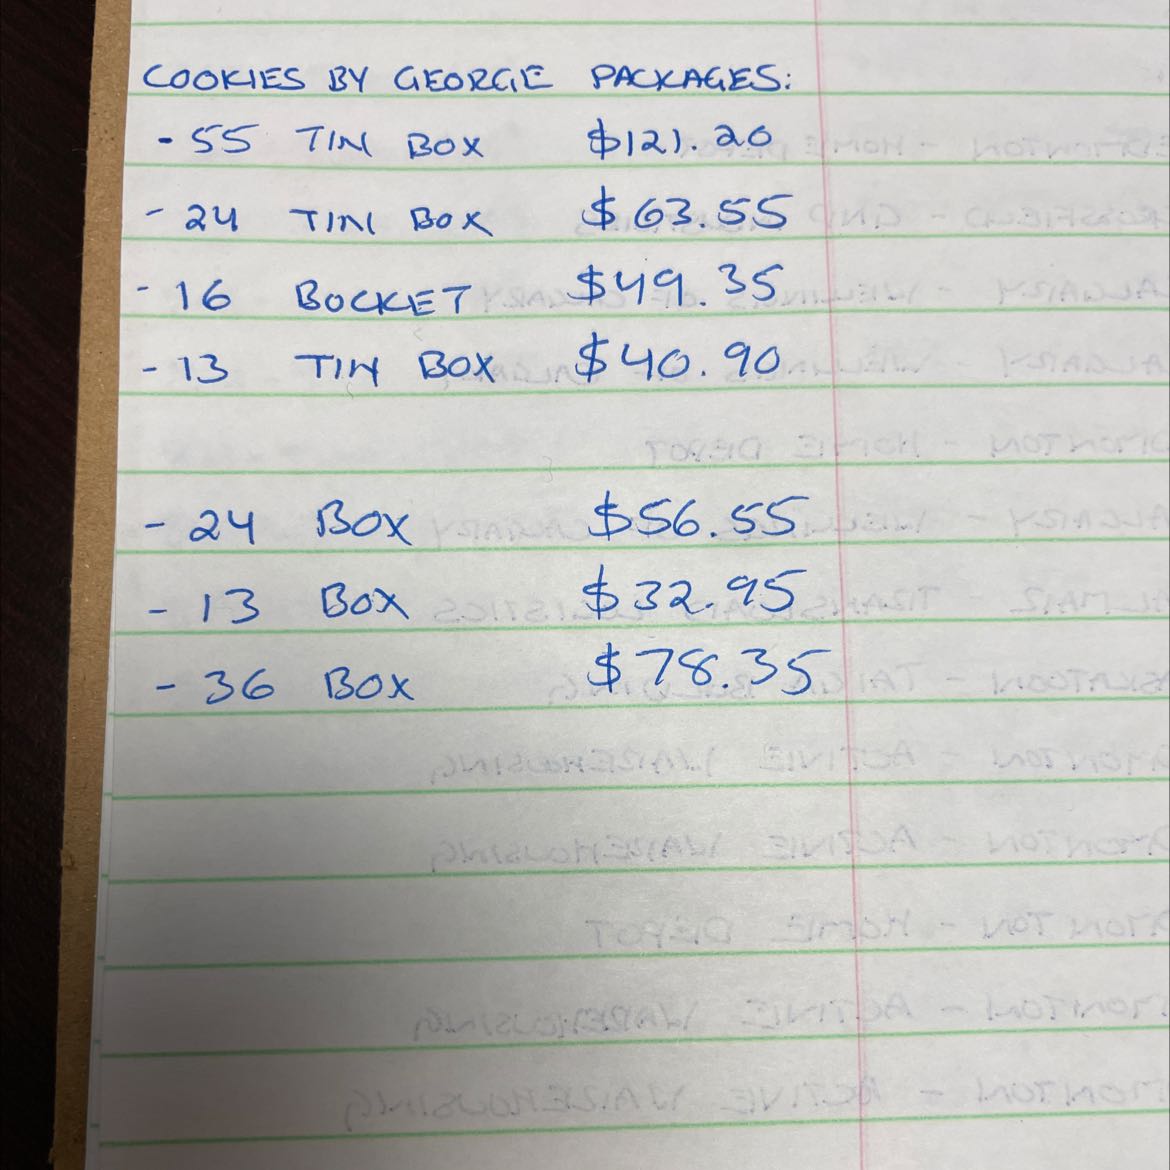 COOKIES BY GEORGE PACKAGES:
- 55 TIN BOX $121.20
- 24 TIN BOX $63.55
- 16 BOCKET $49.35
- 13 TIN BOX $40.90
- 24 BOX $56.55
- 13 BOX $32.95
- 36 BOX $78.35